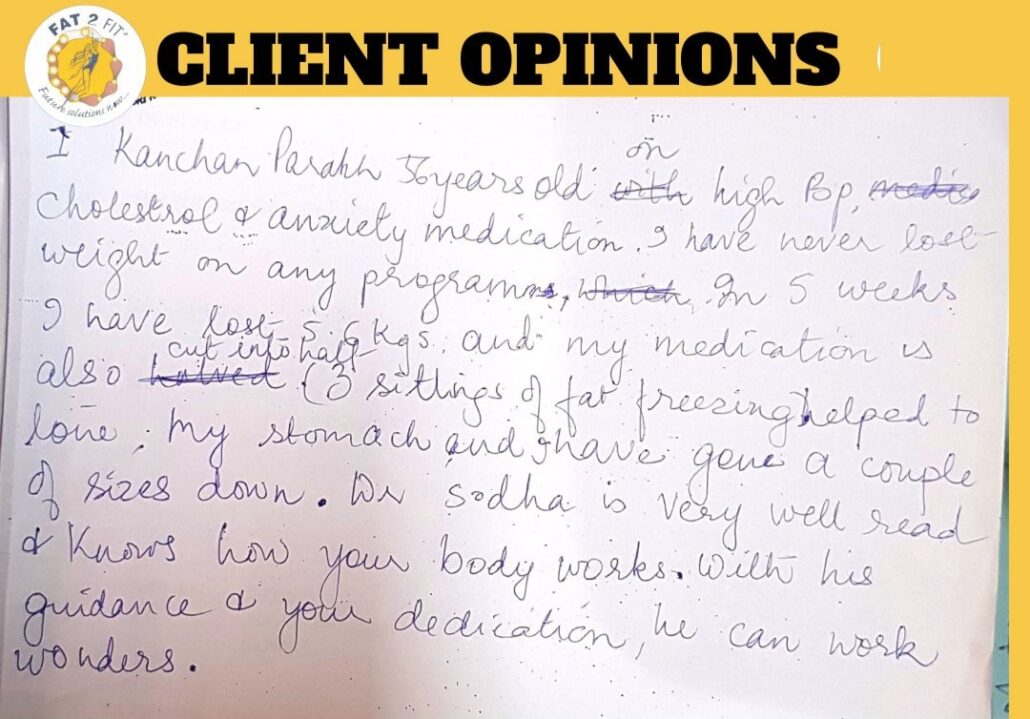 FAT 2 FIT
Future solutions now...
CLIENT OPINIONS
I Kanchan Parakh 56years old on high Bp,
Cholestrol & anxiety medication. I have never lost
weight on any programm, In 5 weeks
I have lost 5.6 Kgs. and my medication is
also cut into half (3 sittings of fat freezing) helped to
lone my stomach and I have gone a couple
of sizes down. Dr Sodha is very well read
& Knows how your body works. With his
guidance & your dedication, he can work
wonders.